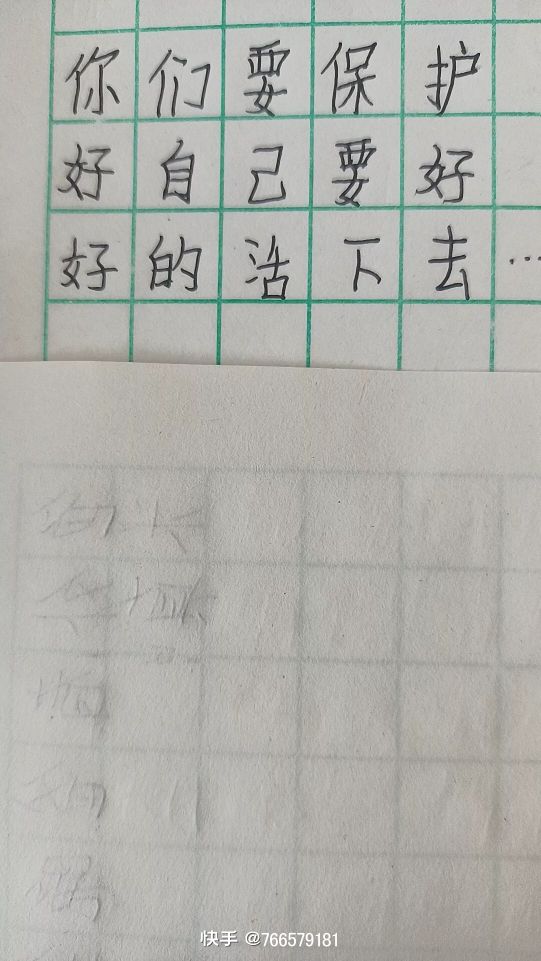 你们要保护
好自己要好
好的活下去…
快手 @766579181